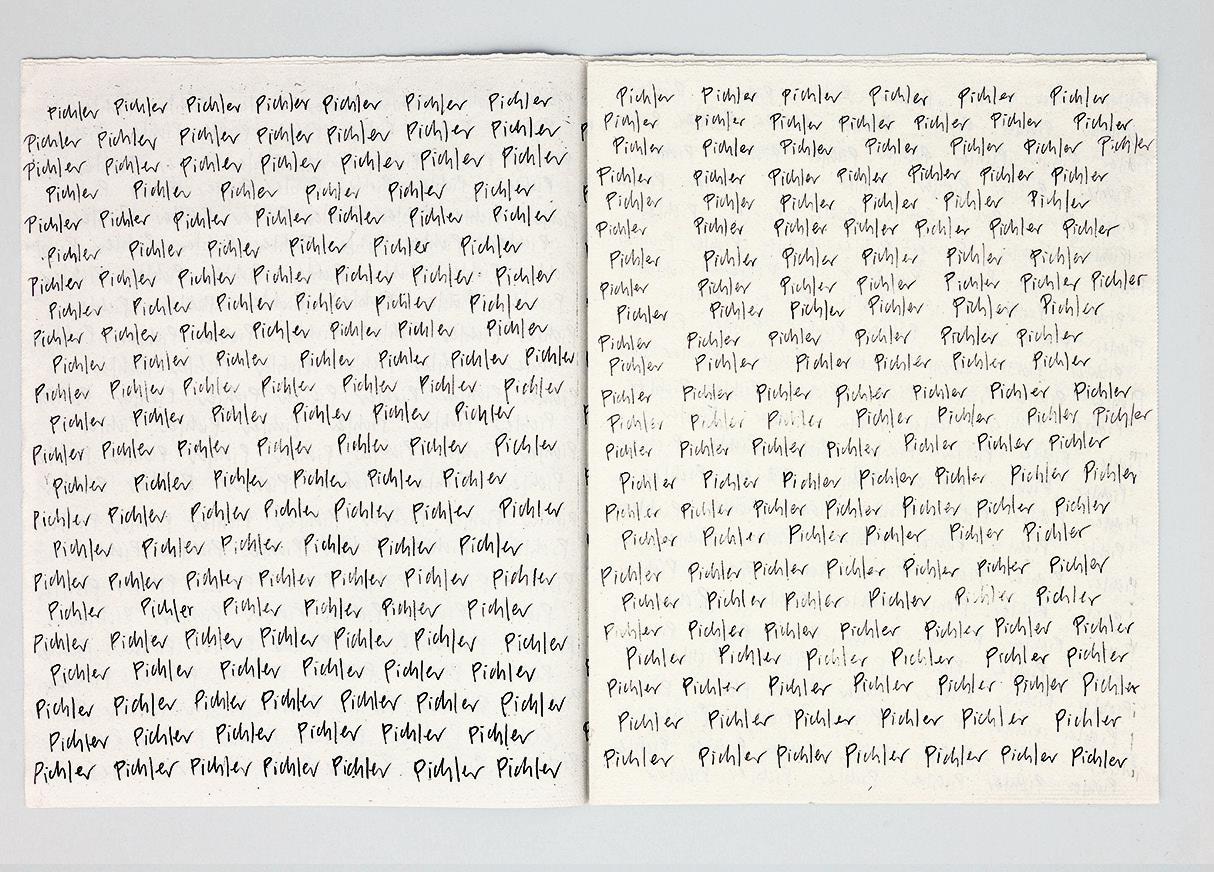 Pichler Pichler Pichler Pichler Pichler Pichler Pichler
Pichler Pichler Pichler Pichler Pichler Pichler Pichler
Pichler Pichler Pichler Pichler Pichler Pichler Pichler
Pichler Pichler Pichler Pichler Pichler Pichler
Pichler Pichler Pichler Pichler Pichler Pichler Pichler
Pichler Pichler Pichler Pichler Pichler Pichler
Pichler Pichler Pichler Pichler Pichler Pichler Pichler
Pichler Pichler Pichler Pichler Pichler Pichler
Pichler Pichler Pichler Pichler Pichler Pichler Pichler
Pichler Pichler Pichler Pichler Pichler Pichler Pichler
Pichler Pichler Pichler Pichler Pichler Pichler Pichler
Pichler Pichler Pichler Pichler Pichler Pichler
Pichler Pichler Pichler Pichler Pichler Pichler Pichler
Pichler Pichler Pichler Pichler Pichler Pichler
Pichler Pichler Pichler Pichler Pichler Pichler Pichler
Pichler Pichler Pichler Pichler Pichler Pichler
Pichler Pichler Pichler Pichler Pichler Pichler Pichler
Pichler Pichler Pichler Pichler Pichler Pichler
Pichler Pichler Pichler Pichler Pichler Pichler Pichler
Pichler Pichler Pichler Pichler Pichler Pichler
Pichler Pichler Pichler Pichler Pichler Pichler Pichler
Pichler Pichler Pichler Pichler Pichler Pichler
Pichler Pichler Pichler Pichler Pichler Pichler Pichler
Pichler Pichler Pichler Pichler Pichler Pichler
Pichler Pichler Pichler Pichler Pichler Pichler Pichler
Pichler Pichler Pichler Pichler Pichler Pichler Pichler
Pichler Pichler Pichler Pichler Pichler Pichler Pichler
Pichler Pichler Pichler Pichler Pichler Pichler
Pichler Pichler Pichler Pichler Pichler Pichler Pichler
Pichler Pichler Pichler Pichler Pichler Pichler
Pichler Pichler Pichler Pichler Pichler Pichler Pichler
Pichler Pichler Pichler Pichler Pichler Pichler
Pichler Pichler Pichler Pichler Pichler Pichler
Pichler Pichler Pichler Pichler Pichler Pichler
Pichler Pichler Pichler Pichler Pichler Pichler Pichler
Pichler Pichler Pichler Pichler Pichler Pichler Pichler
Pichler Pichler Pichler Pichler Pichler Pichler Pichler
Pichler Pichler Pichler Pichler Pichler Pichler Pichler
Pichler Pichler Pichler Pichler Pichler Pichler Pichler
Pichler Pichler Pichler Pichler Pichler Pichler
Pichler Pichler Pichler Pichler Pichler Pichler Pichler
Pichler Pichler Pichler Pichler Pichler Pichler
Pichler Pichler Pichler Pichler Pichler Pichler Pichler
Pichler Pichler Pichler Pichler Pichler Pichler
Pichler Pichler Pichler Pichler Pichler Pichler Pichler
Pichler Pichler Pichler Pichler Pichler Pichler
Pichler Pichler Pichler Pichler Pichler Pichler Pichler